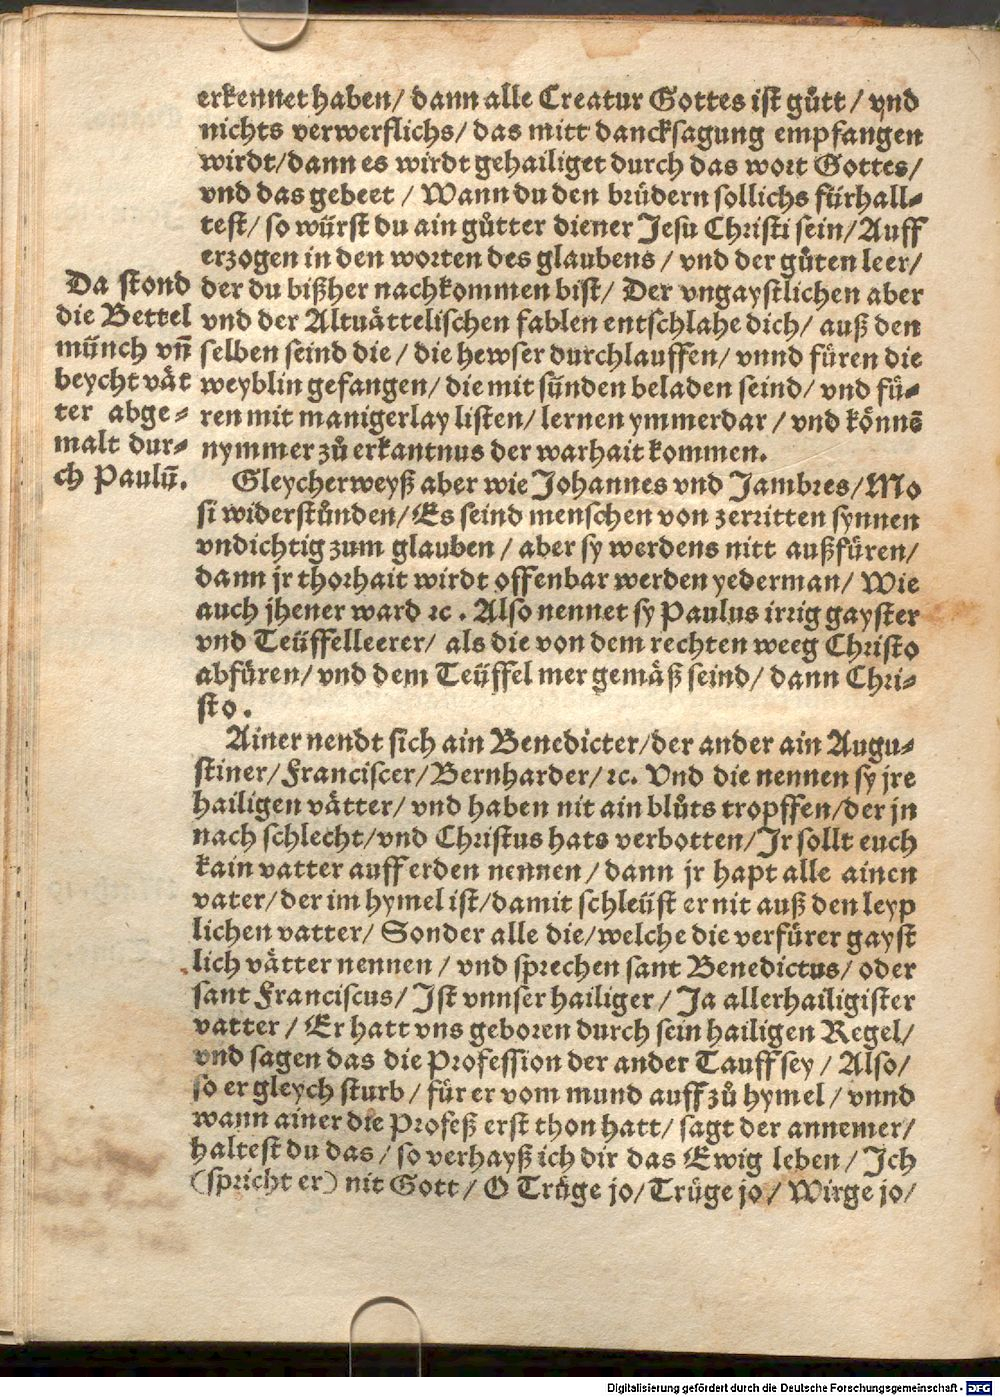 erkennet haben/ dann alle Creatur Gottes ist gůtt/ vnd
nichts verwerflichs/ das mitt dancksagung empfangen
wirdt/dann es wirdt gehailiget durch das wort Gottes/
vnd das gebeet/ Wann du den brüdern sollichs fürhall-
test/ so würst du ain gůtter diener Jesu Christi sein/ Auff
erzogen in den worten des glaubens/ vnd der gůten leer/
der du bißher nachkommen bist/ Der vngaystlichen aber
vnd der Altuättelischen fablen entschlahe dich/ auß den
selben seind die/ die hewser durchlauffen/ vnnd füren die
weyblin gefangen/ die mit sünden beladen seind/ vnd fü-
ren mit manigerlay listen/ lernen ymmerdar/ vnd könnē
nymmer zů erkantnus der warhait kommen.
Da stond
die Bettel
münch vn̄
beycht vät
ter abge-
malt dur-
ch Paulū.
Gleycherweyß aber wie Johannes vnd Jambres/ Mo
si widerstůnden/ Es seind menschen von zerritten synnen
vndichtig zum glauben/ aber sy werdens nitt außfüren/
dann jr thorhait wirdt offenbar werden yederman/ Wie
auch jhener ward ꝛc. Also nennet sy Paulus irrig gayster
vnd Teüffelleerer/ als die von dem rechten weeg Christo
abfüren/ vnd dem Teüffel mer gemäß seind/ dann Chri-
sto.
Ainer nendt sich ain Benedicter/der ander ain Augu-
stiner/ Franciscer/ Bernharder/ ꝛc. Vnd die nennen sy jre
hailigen vätter/ vnd haben nit ain blůts tropffen/der jn
nach schlecht/vnd Christus hats verbotten/ Jr sollt euch
kain vatter auff erden nennen/ dann jr hapt alle ainen
vater/ der im hymel ist/damit schleüst er nit auß den leyp
lichen vatter/ Sonder alle die/welche die verfürer gayst
lich vätter nennen/ vnd sprechen sant Benedictus/ oder
sant Franciscus/ Ist vnnser hailiger/ Ja allerhailigister
vatter/ Er hatt vns geboren durch sein hailigen Regel/
vnd sagen das die Profession der ander Tauff sey/ Also/
so er gleych sturb/ für er vom mund auff zů hymel/ vnnd
wann ainer die Profeß erst thon hatt/ sagt der annemer/
haltest du das/ so verhayß ich dir das Ewig leben/ Ich
(spricht er) nit Gott/ O Trüge jo/ Trüge jo/ Wirge jo/
Digitalisierung gefördert durch die Deutsche Forschungsgemeinschaft - DFG